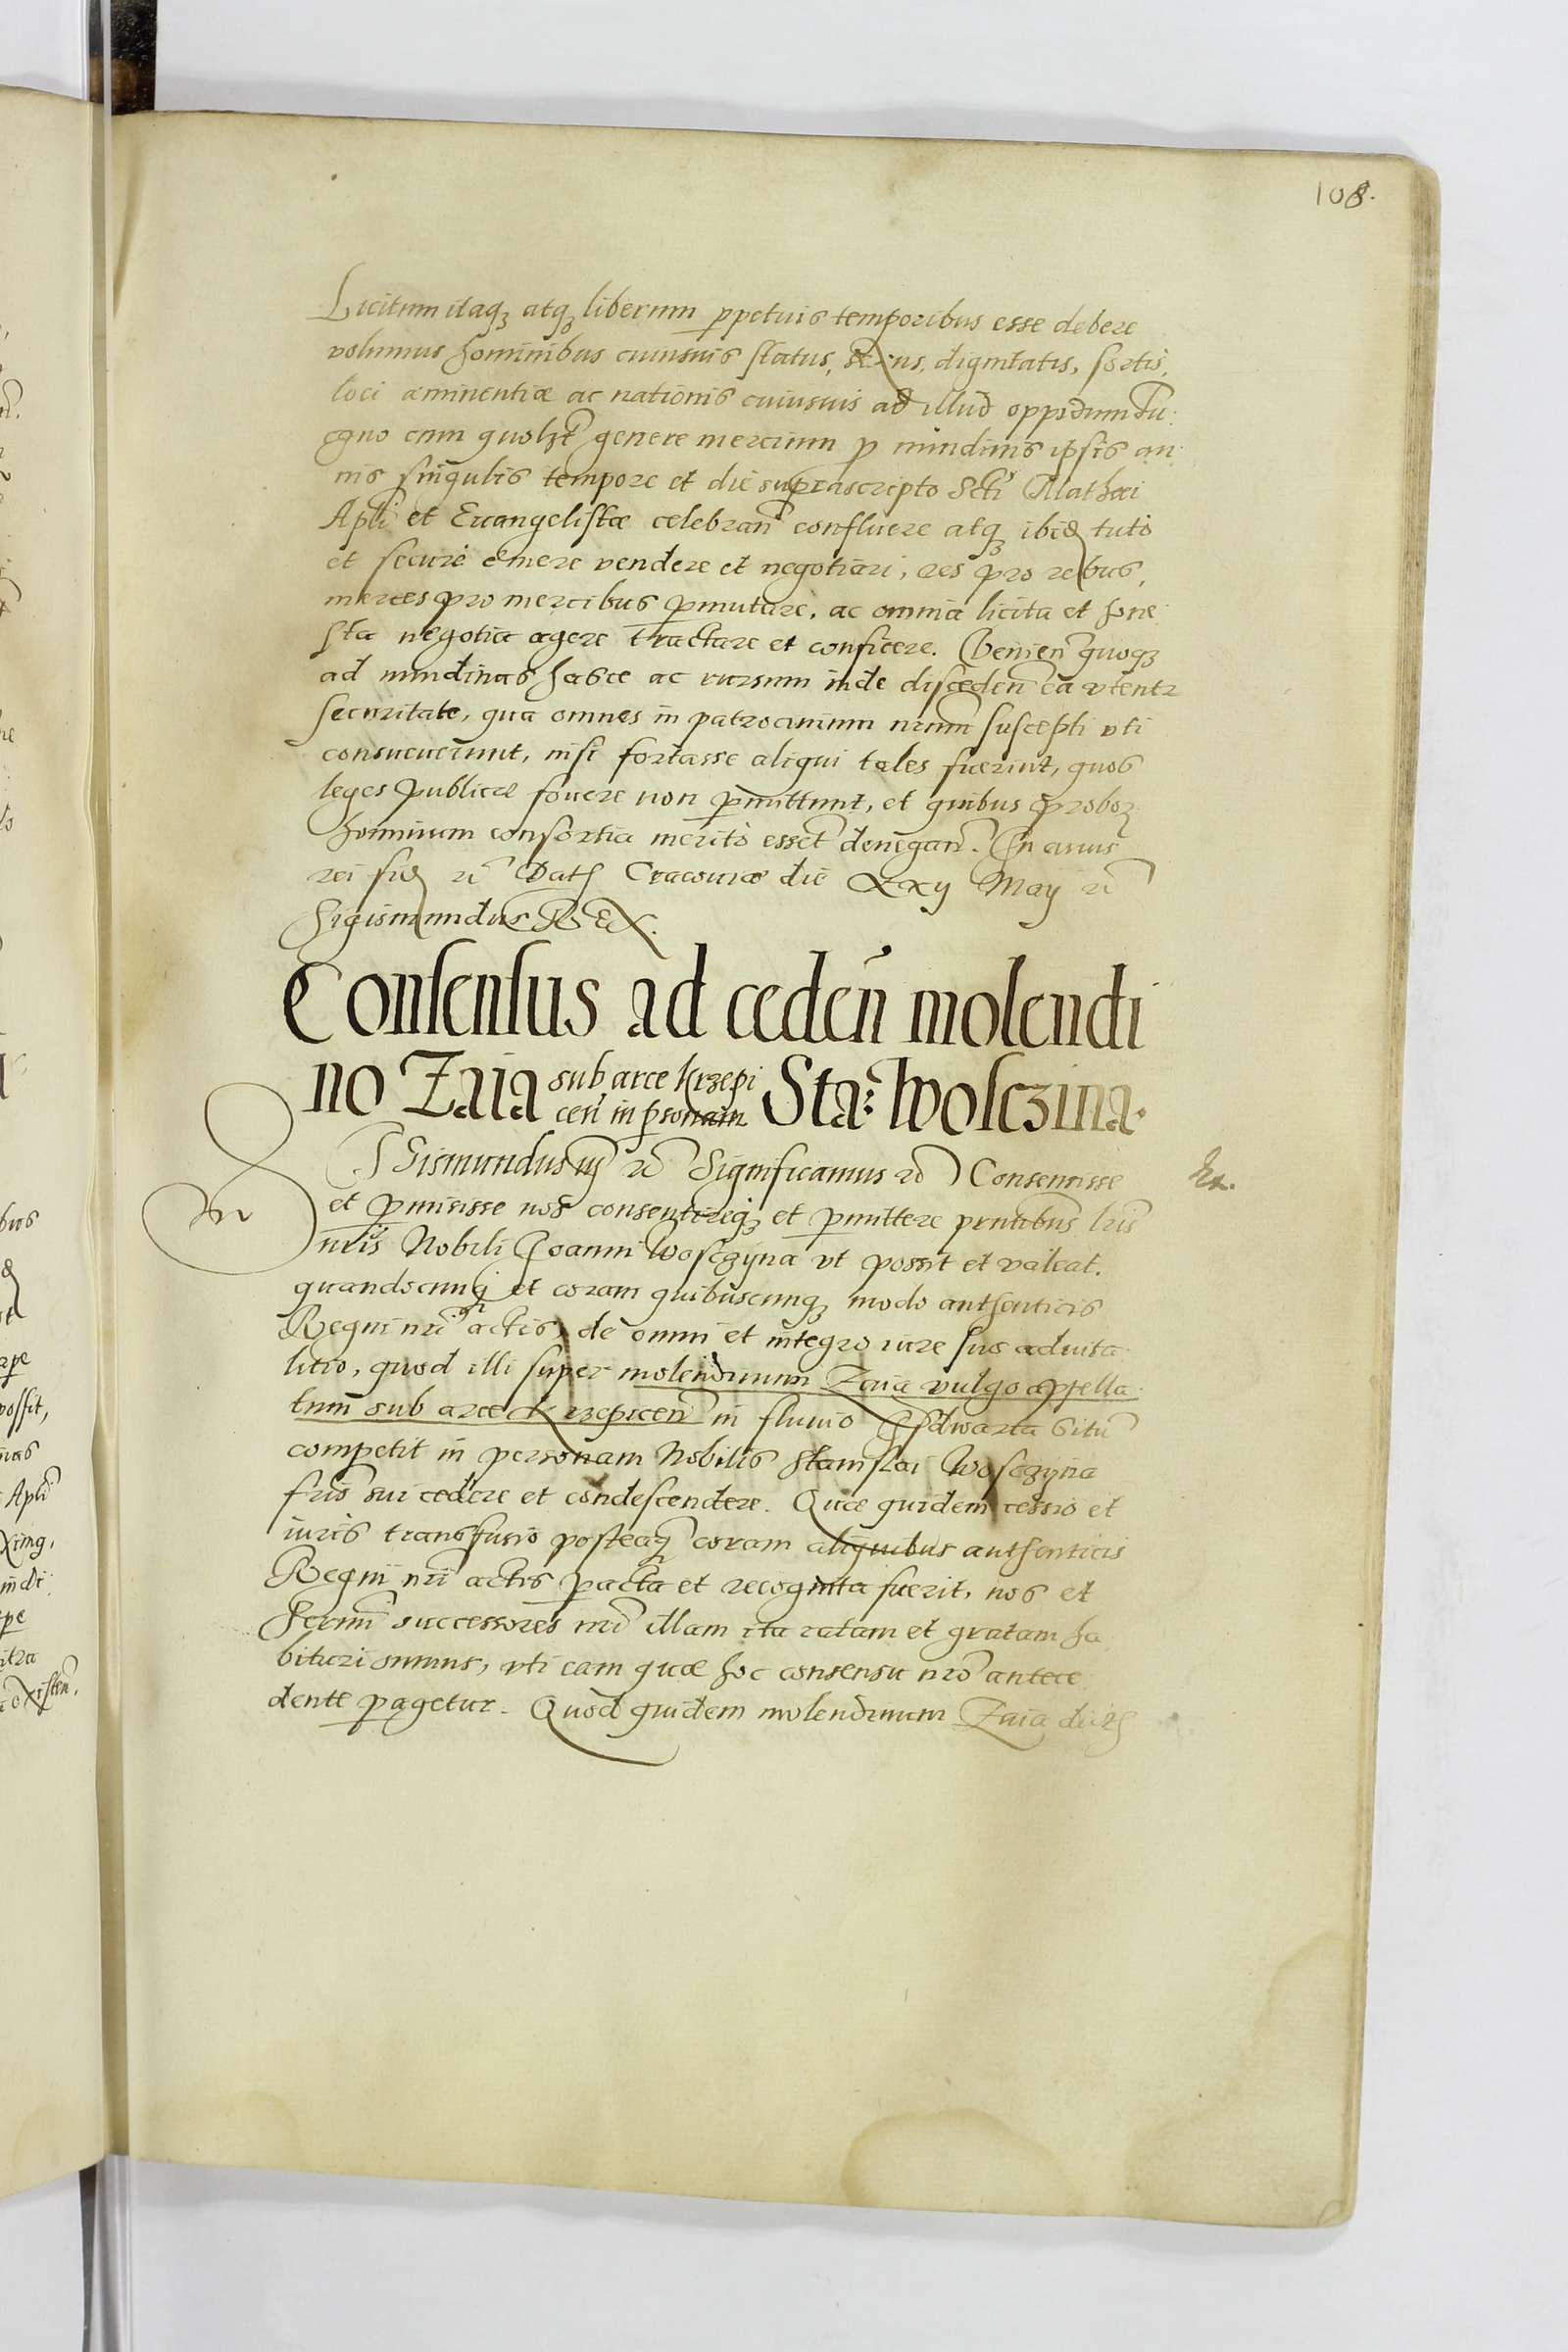 108.
Licitum itaqꝫ atqꝫ liberum ꝑpetuis temporibus esse debere
volumus hominibus cuiusuis status, sexus, dignitatis, sortis,
loci æminentiæ ac nationis cuiusuis ad illud oppidum
cum genere mercium ꝑ nundinis ipsis an
nis singulis tempore et die suprascripto Scti Mathæi
Apli et Euangelistæ celebran̄ confluere atqꝫ ibid tuto
et securè emere vendere et negotiari, res pro rebus,
merces pro mercibus ꝑmutare, ac omnia licita et hone
sta negotia agere tractare et conficere. Venien̄ quoqꝫ
ad nundinas hasce ac rursum inde discæden̄ ea vtentr
securitate, qua omnes in patrocinium nrum suscepti vti
consueuerunt, nisi fortasse aliqui tales fuerint, quos
leges publicæ fouere non ꝑmittunt, et quibus proboꝝ
hominum consortia meritò essēt denegan̄. In cuius
rei fid rc̄ Dat Cracouiæ die Xxij Maij rc̄
Sigismundus REX.
Consensus ad ceden̄ molendi
no Zaia sub arce Krzepi
cen̄ in ꝑsonam Sta: Wolczina.
SIGismundus iij rc̄ Significamus rc̄ Consensisse
Ex.
et ꝑmisisse nos consentireqꝫ et ꝑmittere pntibus lris
nris Nobili Joanni Wosczyna vt possit et valeat.
quandocunqꝫ et coram quibuscunqꝫ modo authenticis
Regni nri actis, de omni et integro iure suo aduita
litio, quod illi super molendinum Zaia vulgo appella
tum sub arce Krzepicen̄ in fluuio situ
competit in personam Nobilis Stanislai Wosczyna
fris sui cedere et condescendere. Quæ quidem cessio et
iuris transfusio posteaqꝫ coram aliquibus authenticis
Regni nri actis ꝑacta et recognita fuerit, nos et
Sermi successores nri illam ita ratam et gratam ha
bituri sumus, vti eam quæ hoc consensu nro antece
dente ꝑagetur. Quod quidem molendinum Zaia